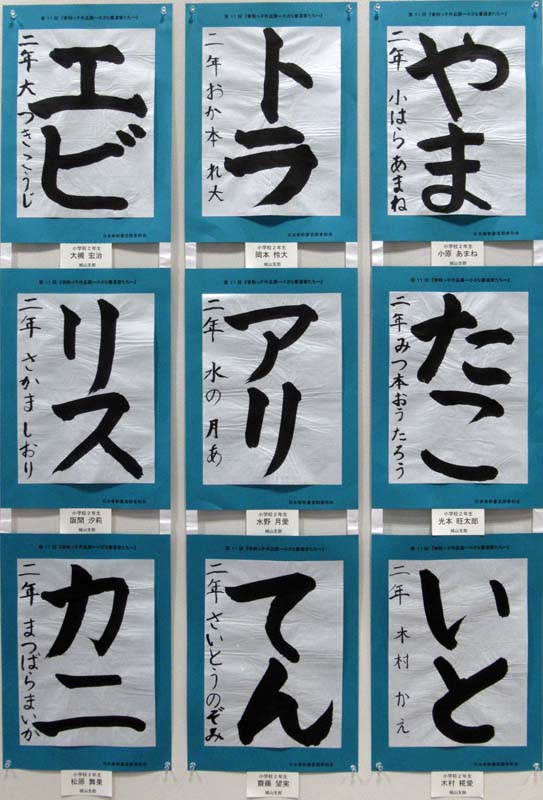 エビ
二年 大つきこうじ
小学校2年生
大槻 宏治
城山支部
トラ
二年 おか本 れ大
小学校2年生
岡本 怜大
城山支部
やま
二年 小はら あまね
小学校2年生
小原 あまね
城山支部
リス
二年 さかま しおり
小学校2年生
阪間 汐莉
城山支部
アリ
二年 水の 月あ
小学校2年生
水野 月愛
城山支部
たこ
二年 みつ本おうたろう
小学校2年生
光本 旺太郎
城山支部
カニ
二年 まつばらまいか
小学校2年生
松原 舞果
城山支部
てん
二年 さいとうのぞみ
小学校2年生
齋藤 望実
城山支部
いと
二年 木村 かえ
小学校2年生
木村 椛愛
城山支部